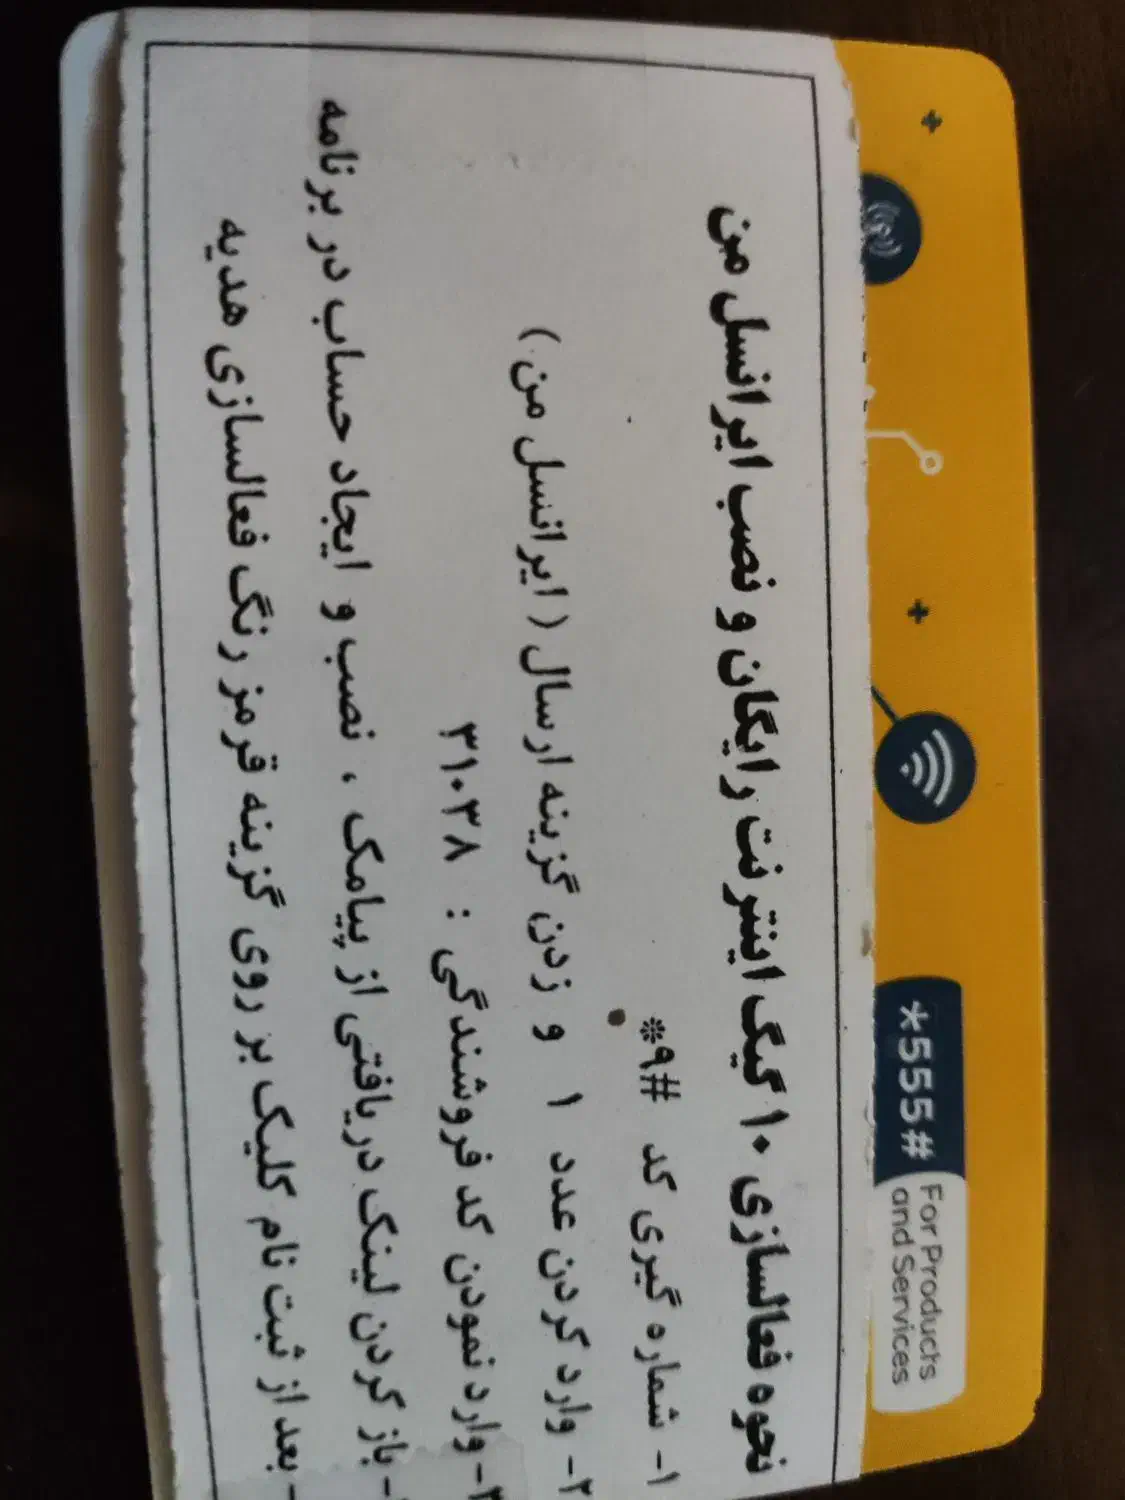 *555#
For Products
and Services
نحوه فعالسازی ۱۰ گیگ اینترنت رایگان و نصب ایرانسل من
۱- شماره گیری کد #۹*
۲- وارد کردن عدد ۱ و زدن گزینه ارسال ( ایرانسل من )
۳- وارد نمودن کد فروشندگی : ۳۱۰۳۸
- باز کردن لینک دریافتی از پیامک ، نصب و ایجاد حساب در برنامه
- بعد از ثبت نام کلیک بر روی گزینه قرمز رنگ فعالسازی هدیه